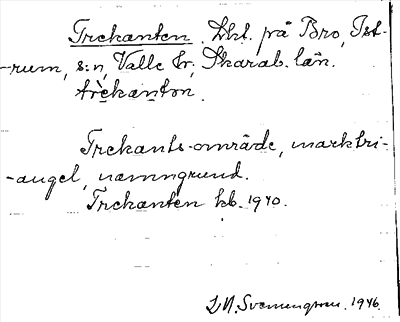 Trekanten. Lht. på Bro, Ist-
-rum, s:n, Valle hr, Skarab. län.
trèkanton.
Trekants-område, marktri-
-angel, namngrund.
Trekanten kb. 1940.
1946.